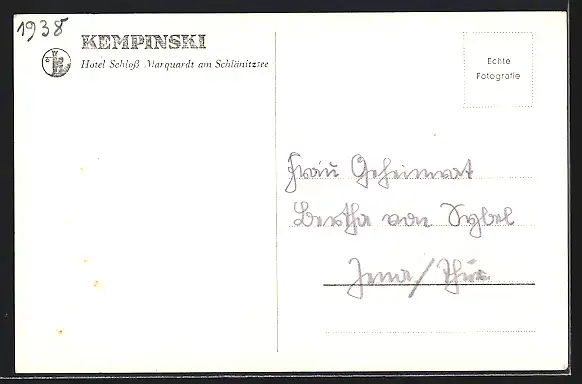 1938
KEMPINSKI
Hotel Schloß Marquardt am Schlänitzsee
Echte
Fotografie
Frau Geheimrat
Bertha von Sybel
Jena/Thür.